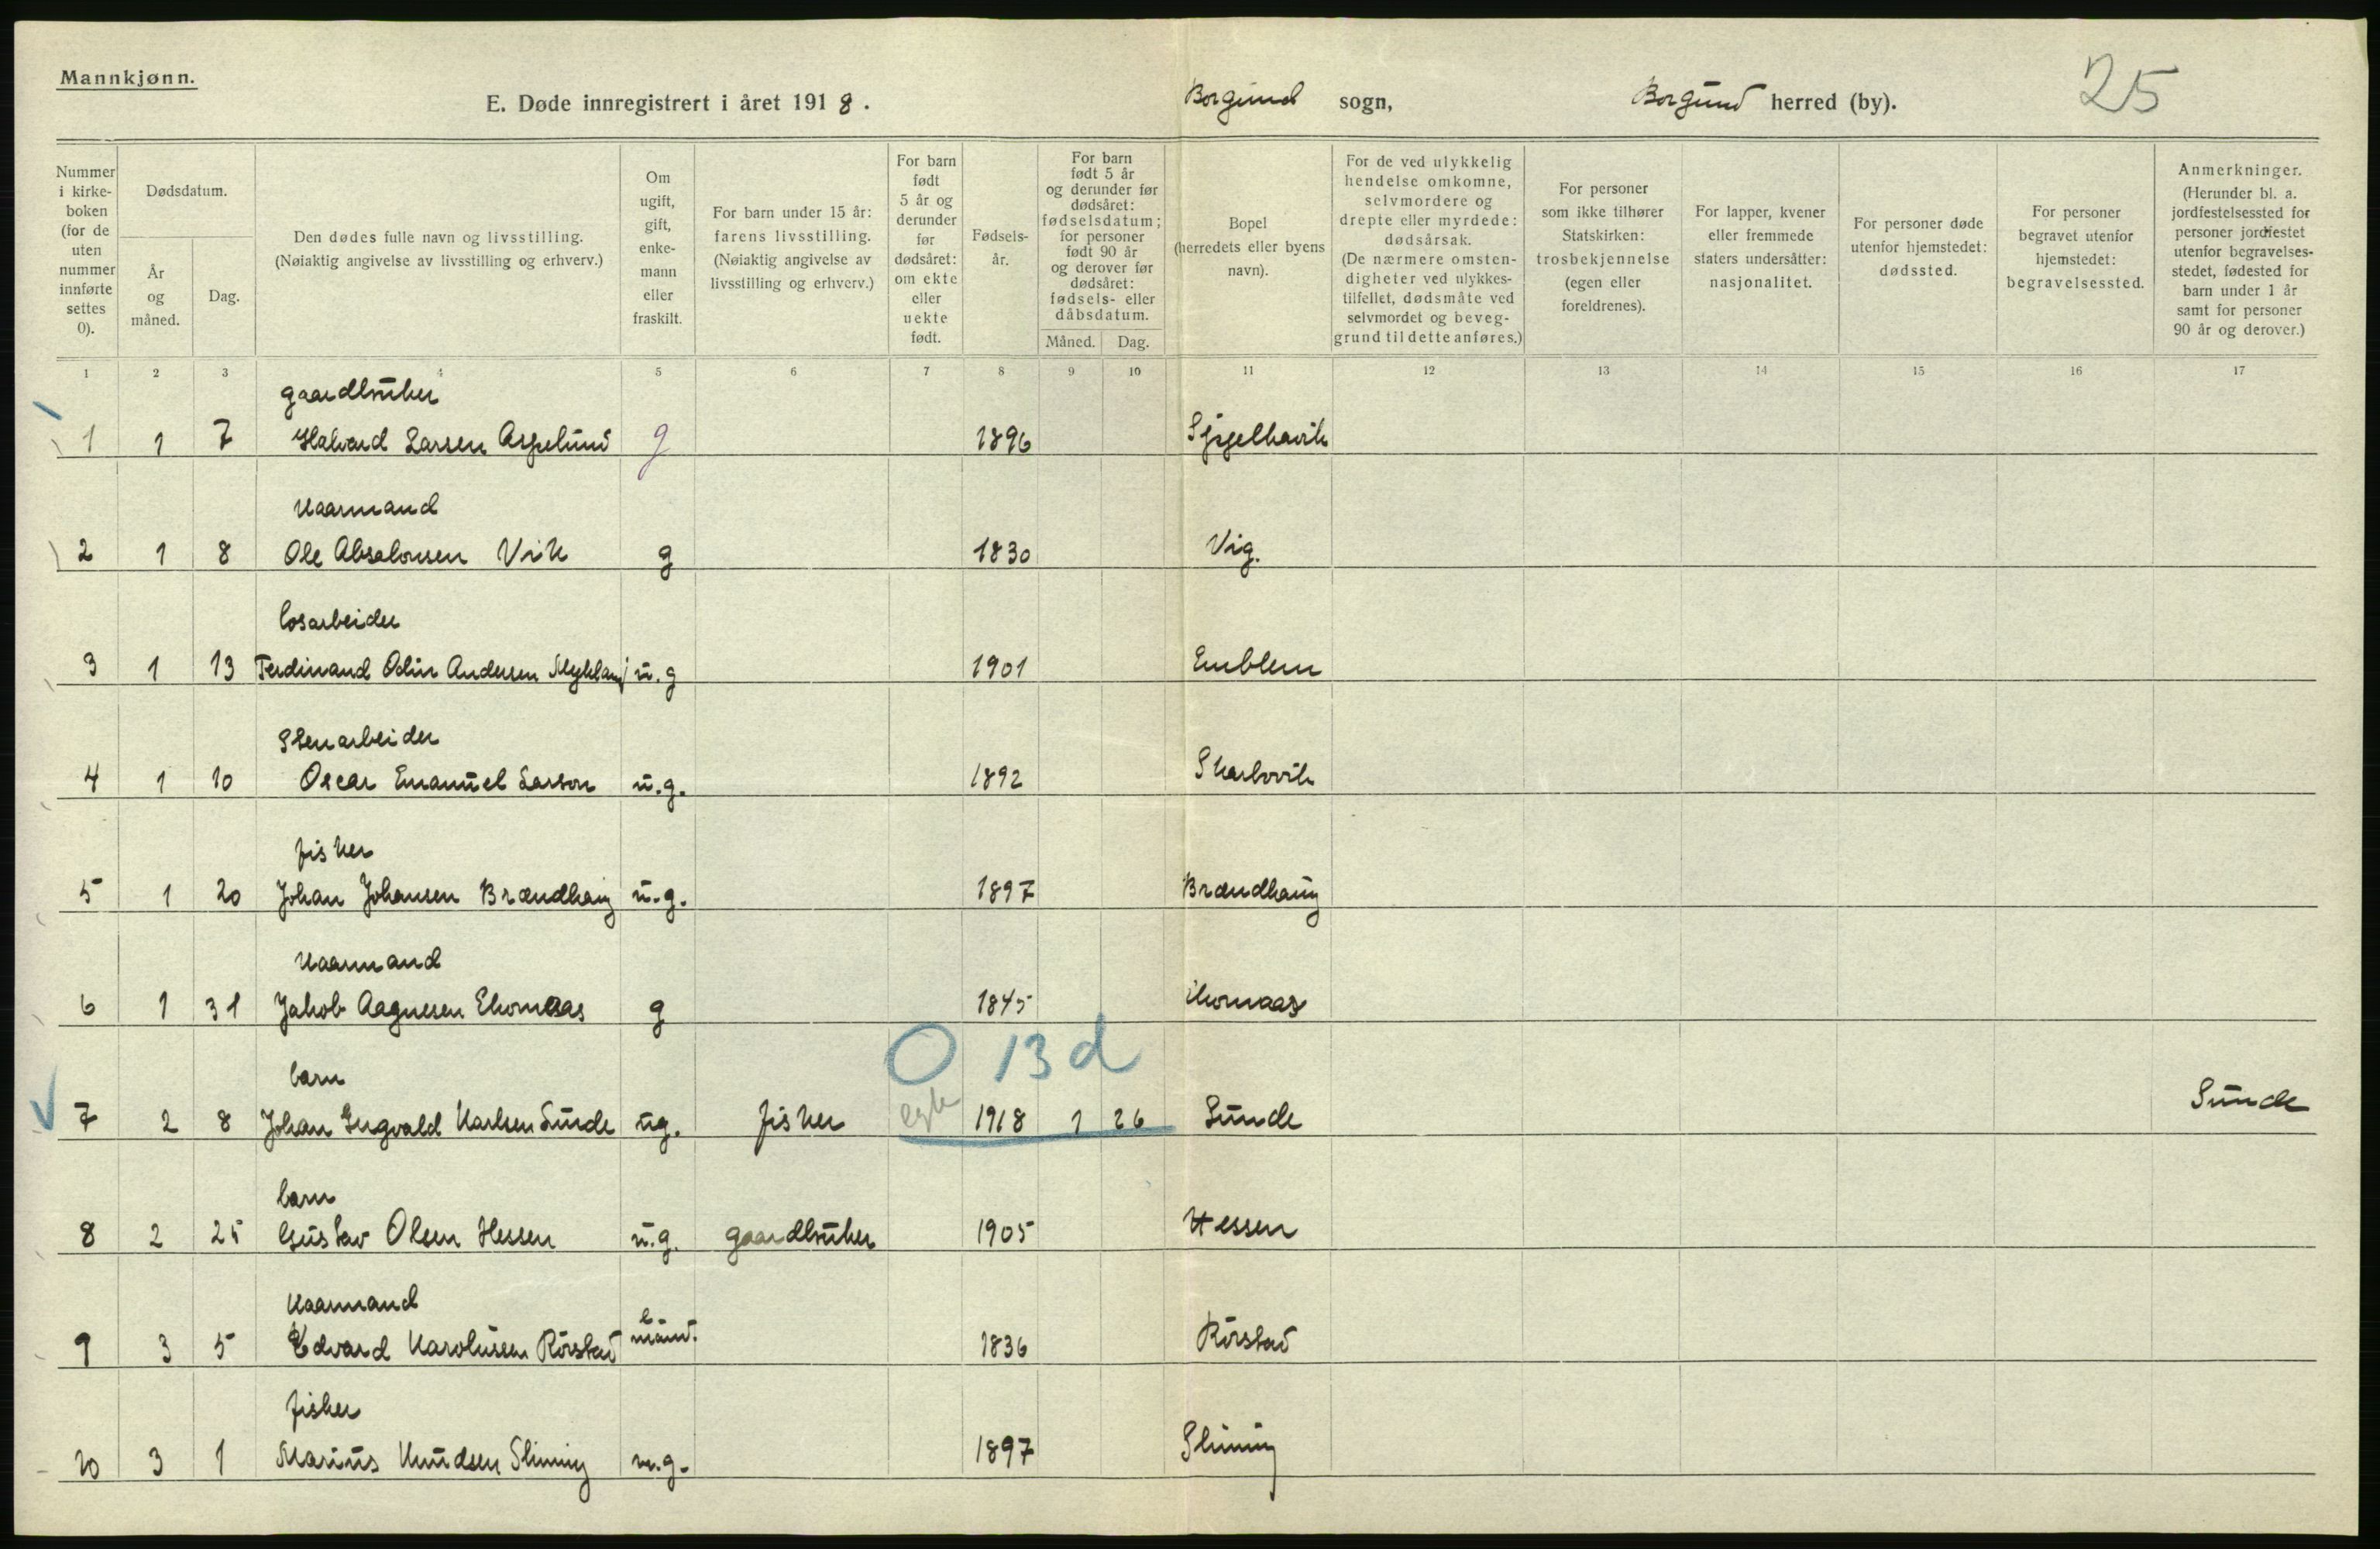 Mannkjønn.
E. Døde innregistrert i året 1918.
Borgund sogn,
Borgund herred (by).
25
Nummer i kirke- boken (for de uten nummer innførte settes 0).
Dødsdatum.
År og måned.
Dag.
Den dødes fulle navn og livsstilling. (Nøiaktig angivelse av livsstilling og erhverv.)
Om ugift, gift, enke- mann eller fraskilt.
For barn under 15 år: farens livsstilling. (Nøiaktig angivelse av livsstilling og erhverv.)
For barn født 5 år og derunder før dødsåret: om ekte eller uekte født.
Fødsels- år.
For barn født 5 år og derunder før dødsåret: fødselsdatum; for personer født 90 år og derover før dødsåret: fødsels- eller dåbsdatum.
Måned.
Dag.
Bopel (herredets eller byens navn).
For de ved ulykkelig hendelse omkomne, selvmordere og drepte eller myrdede: dødsårsak. (De nærmere omsten- digheter ved ulykkes- tilfellet, dødsmåte ved selvmordet og beveg- grund til dette anføres.)
For personer som ikke tilhører Statskirken: trosbekjennelse (egen eller foreldrenes).
For lapper, kvener eller fremmede staters undersåtter: nasjonalitet.
For personer døde utenfor hjemstedet: dødssted.
For personer begravet utenfor hjemstedet: begravelsessted.
Anmerkninger. (Herunder bl. a. jordfestelsessted for personer jordfestet utenfor begravelses- stedet, fødested for barn under 1 år samt for personer 90 år og derover.)
1 2 3 4 5 6 7 8 9 10 11 12 13 14 15 16 17
gaardbruker
1 1 7 Halvard Larsen Aspelund g 1896
Kaarmand
2 1 8 Ole Absalonsen Vik g 1830 Vig.
losarbeider
3 1 13 Ferdinand Odin Andersen u.g 1901 Emblem
Stenarbeider
4 1 10 Oscar Emanuel Larson u.g. 1892 Skarbovik
fisker
5 1 20 Johan Johansen Brændhaug u.g. 1897 Brændhaug
Kaarmand
6 1 31 Jakob Aagnesen g 1845
O 13 d
barn
7 2 8 Johan Ingvald Karlsen Sunde ug. fisker egte 1918 1 26 Sunde Sunde
barn
8 2 25 Gustav Olsen Hessen u.g. gaardbruker 1905 Hessen
Kaarmand
9 3 5 Edvard Karolusen Rörstad e mand. 1836 Rörstad
fisker
10 3 1 Marius Knudsen Slinning u.g. 1897 Slinning